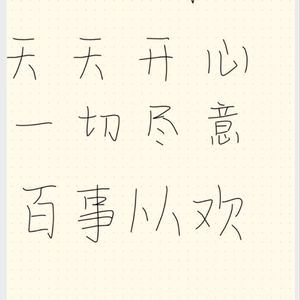 天天开心
一切尽意
百事从欢